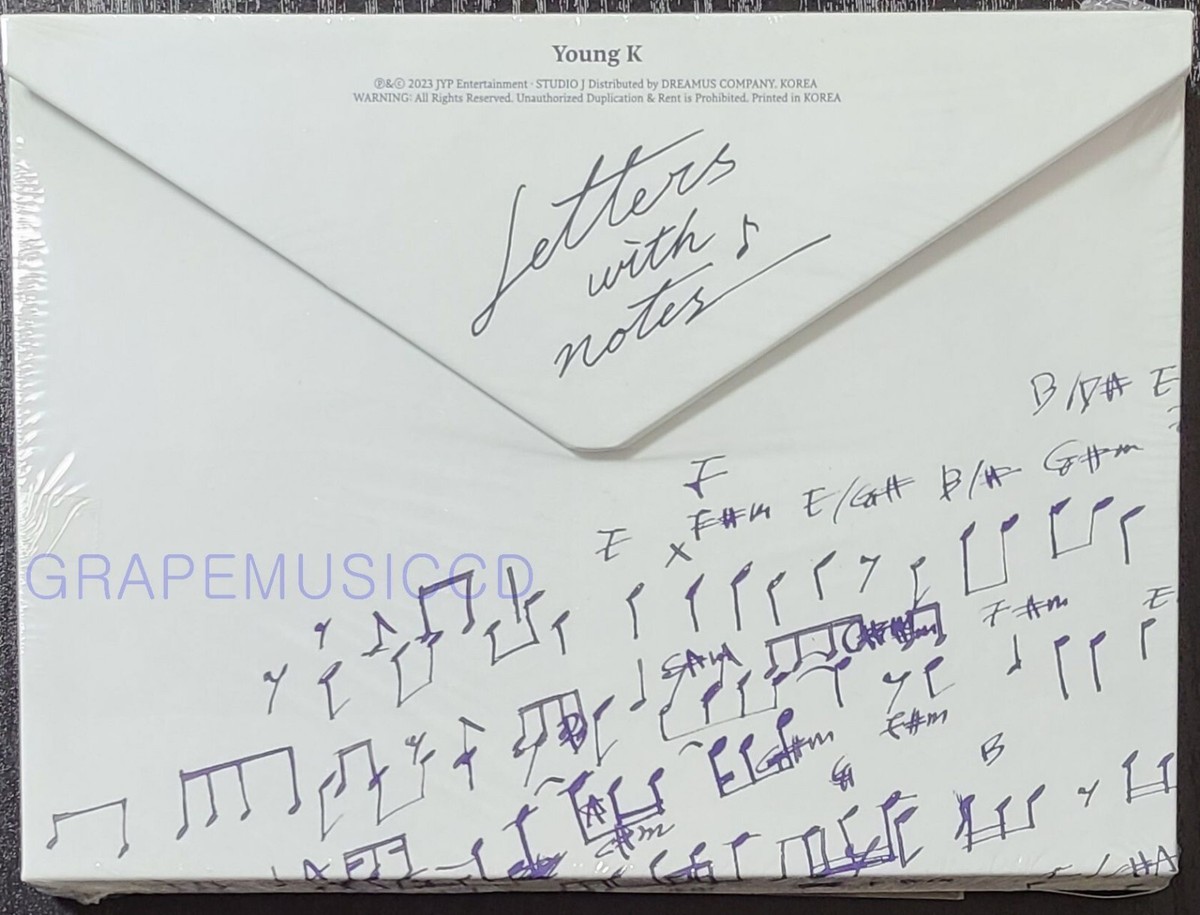 Young K
Ⓟ&ⓒ 2023 JYP Entertainment · STUDIO J Distributed by DREAMUS COMPANY, KOREA
WARNING: All Rights Reserved. Unauthorized Duplication & Rent is Prohibited. Printed in KOREA
Letters
with ♪
notes
B/D# E
F
E x F#m E/G# B/A# G#m
GRAPEMUSICCD
F#m E
C#m
G#m E#m
B
G#
B
A
C#m
A